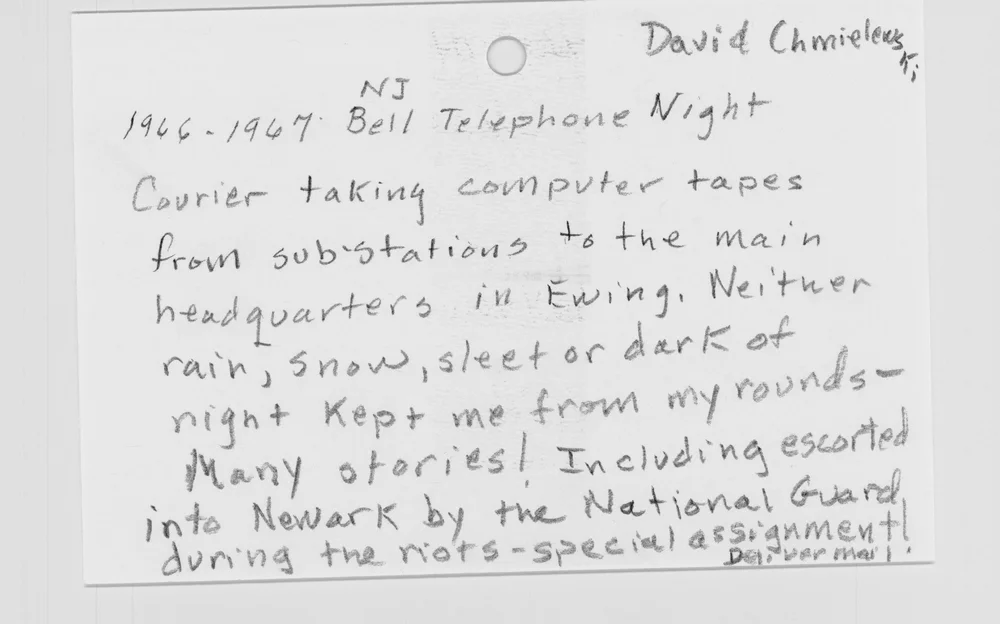 David Chmielewski
NJ
1966-1967 Bell Telephone Night
Courier taking computer tapes
from sub-stations to the main
headquarters in Ewing. Neither
rain, snow, sleet or dark of
night kept me from my rounds-
Many stories! Including escorted
into Newark by the National Guard
during the riots-special assignment!
Deliver mail!